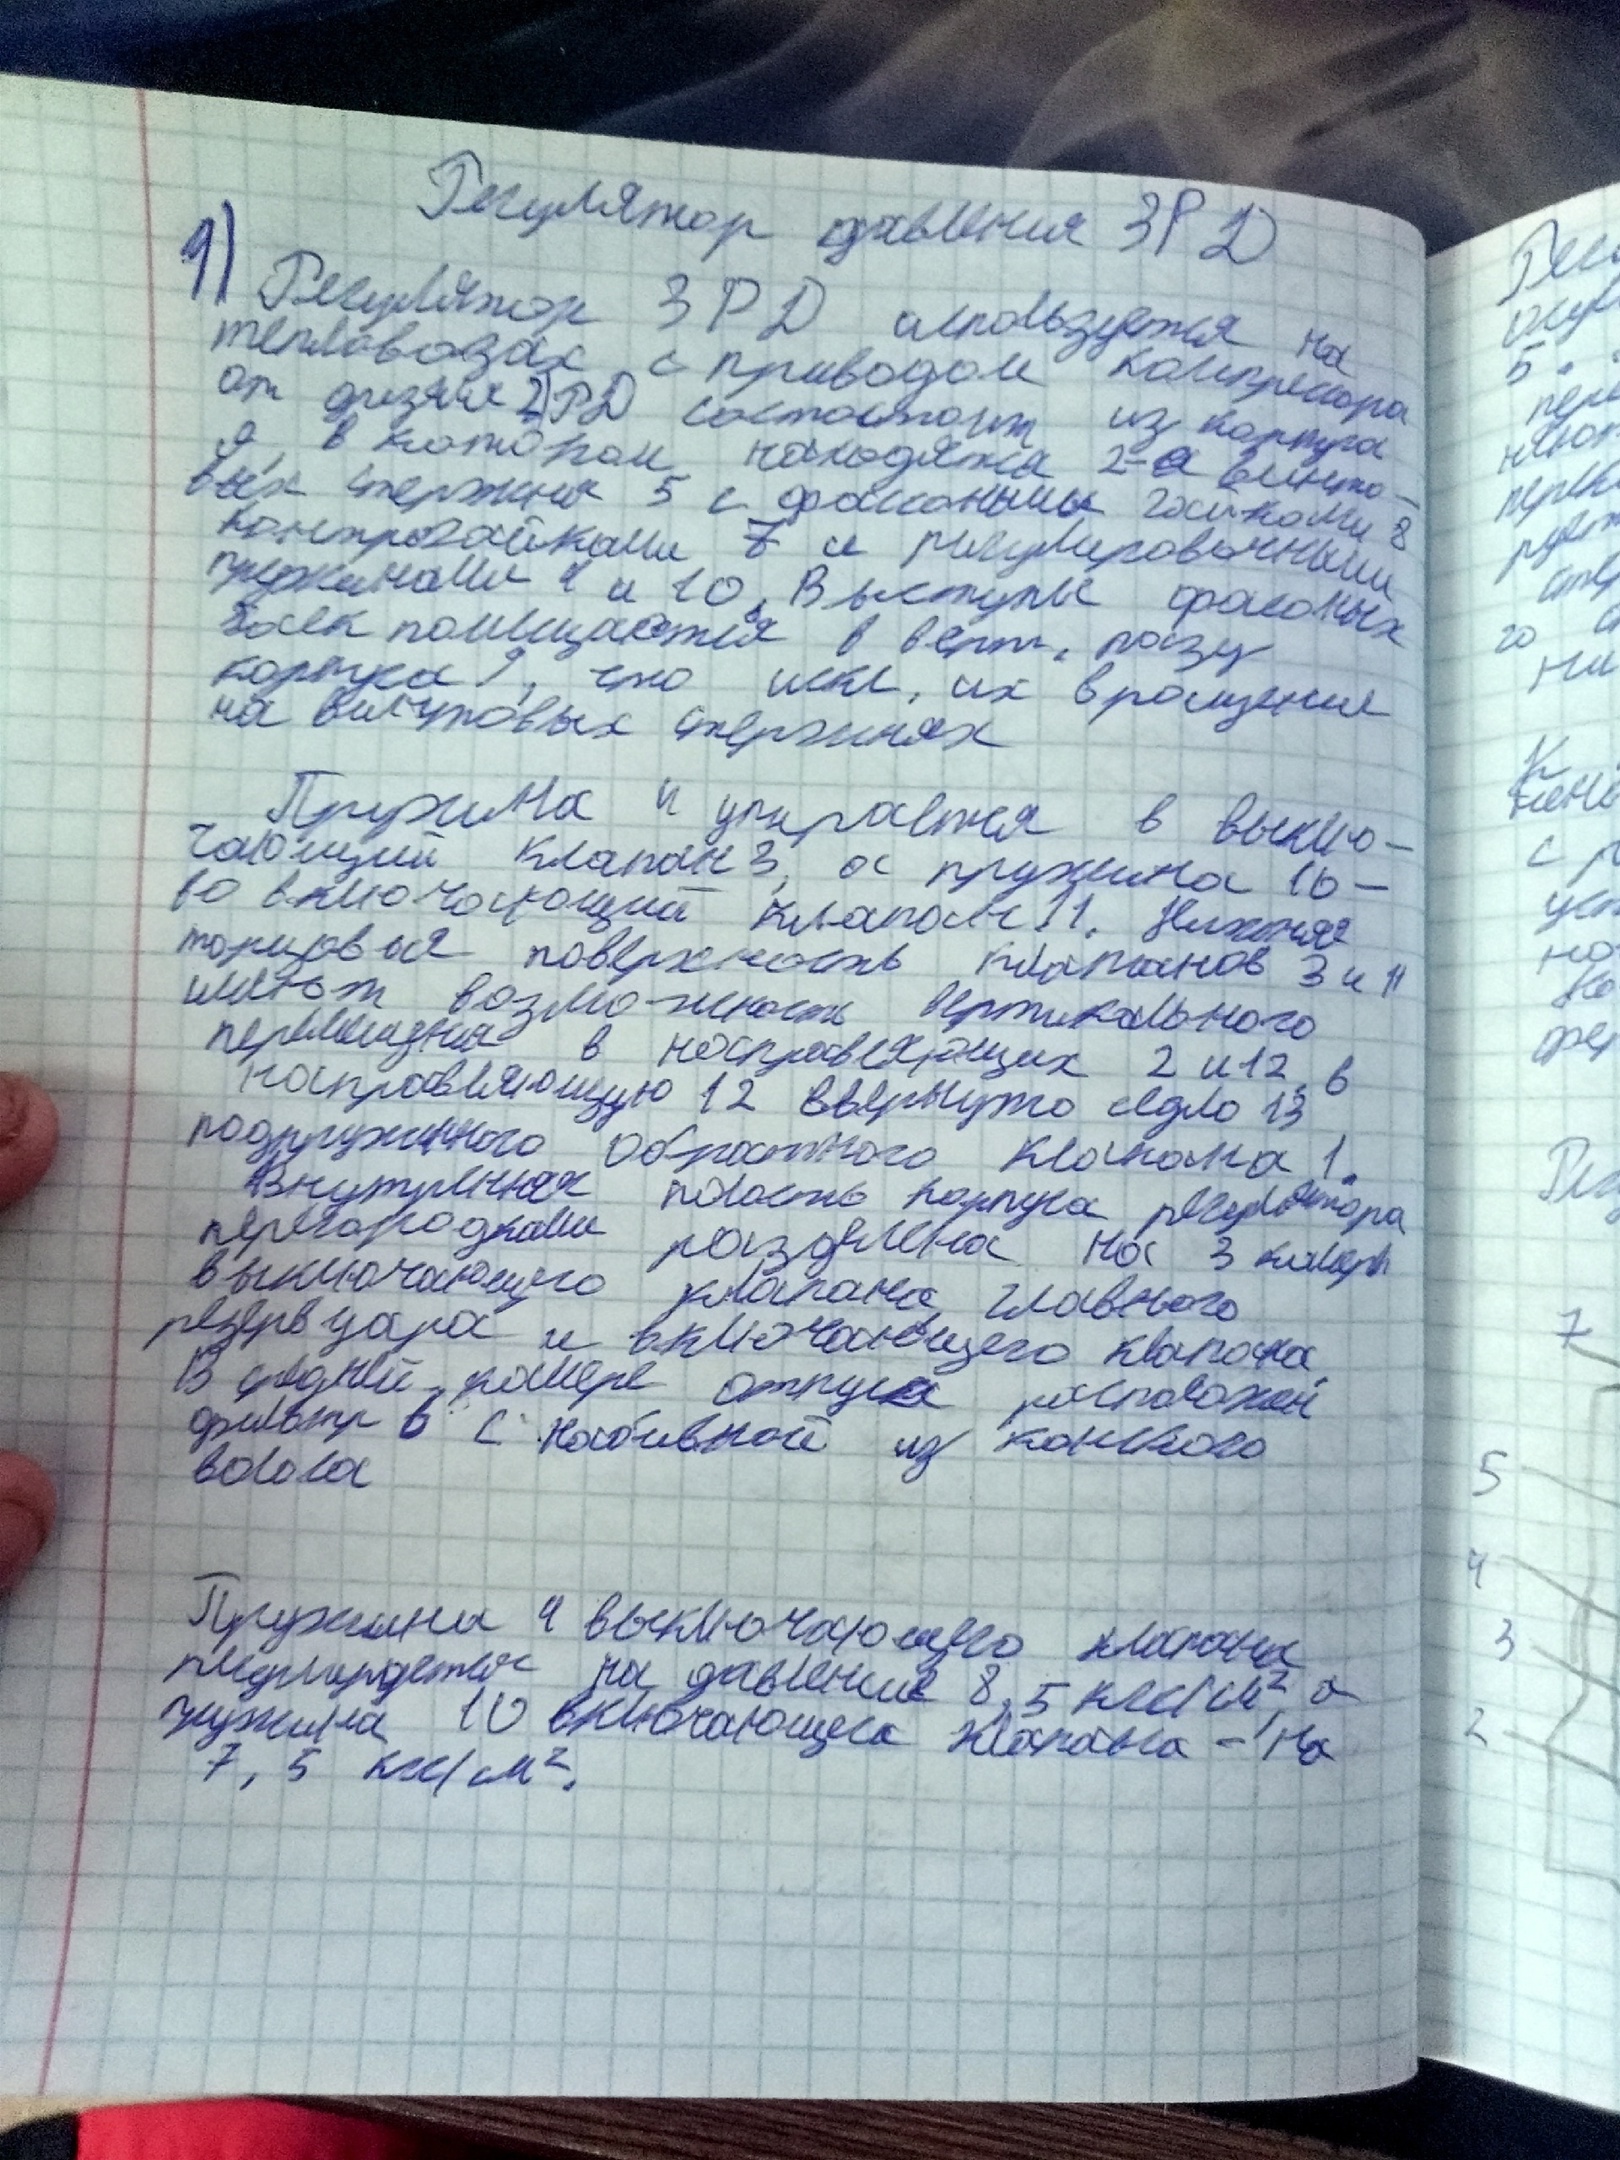 Регулятор давления 3РД
1) Регулятор 3РД используется на
тепловозах с приводом компрессора
от дизеля 2) РД состоит из корпуса
9, в котором находятся 2-а винто-
вых стержня 5 с фасонными гайками 8
контргайками 7 и регулировочными
пружинами 4 и 10. Выступы фасоных
гаек помещаются в верт. пазу
корпуса 9, что искл. их вращение
на винтовых стержнях
Пружина 4 упирается в выклю-
чающий клапан 3, а пружина 10 -
во включающий клапан 11. Нижняя
торцовая поверхность клапанов 3 и 11
имеют возможность вертикального
перемещения в направляющих 2 и 12, в
направляющую 12 ввернуто седло 13
подпружинного обратного клапана 1.
Внутренняя полость корпуса регулятора
перегородками разделена на 3 камеры
выключающего клапана, главного
резервуара и включающего клапана
В средней камере отпуска расположен
фильтр 6 с набивкой из конского
волоса
Пружина 4 выключающего клапана
регулируется на давление 8,5 кгс/см², а
пружина 10 включающего клапана - на
7,5 кгс/см².
7
5
4
3
2